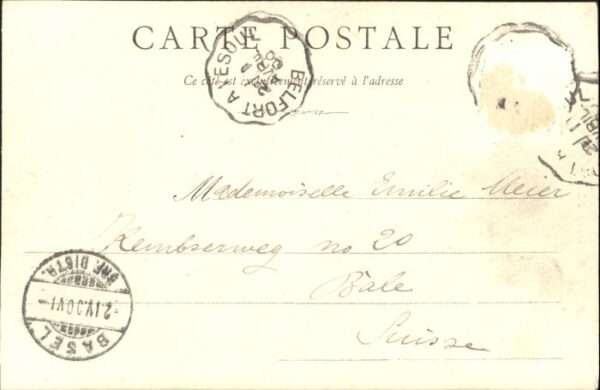 CARTE POSTALE
Ce côté est exclusivement réservé à l'adresse
BELFORT A VESOUL
Mademoiselle Emilie Meier
Rembserweg no 20
Bâle
Suisse
BASEL
2.IV.00.VI
BRF. DISTR.